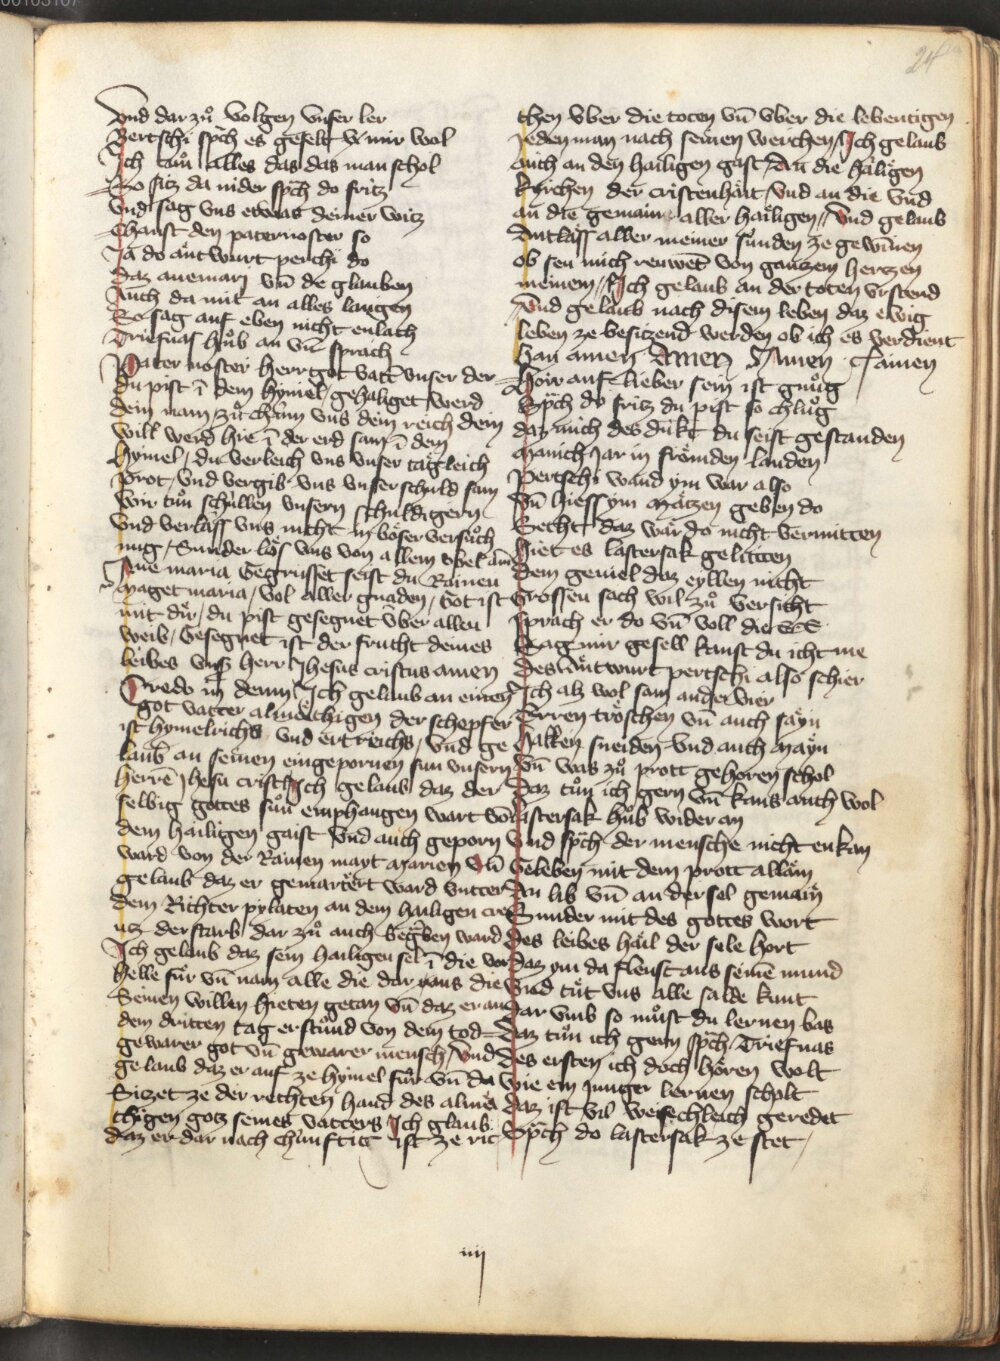 00103107
24
Vnd dar zuͦ volgen vnser ler
Bertschi spͣch es gefelt mir wol
Ich tuͦn alles das das man schol
So sitz da nider spͣch do fritz
Vnd sag vns etwas deiner witz
Chanst den paternoster so
Ja do antwurt pertschi do
Daz auemarj vn̄ de glauben
Auch da mit an alles laugen
So sag auf eben nicht enlach
Triefnas huͦb an vn̄ sprach
Pater noster herr got vatt̾ vnser der
du pist ī dem hymel / gehaliget werd
dein nam / zuͦ chum vns dein reich dein
will werd hie ī der erd sam ī dem
hymel / du verleich vns vnser tägleich
prot / vnd vergib vns vnser schuld sam
wir tuͦn schullen vnsern schuldigern
vnd verläss vns nicht in böser versuͦch
nug / Sunder lös vns von allem vbel am̄
Aue maria Gegrusset seist du Rainen
Maget maria / vol aller gnaden / Got ist
mit dir / du pist gesegnet vber allen
weib / Gesegnet ist der frucht deines
leibes vnß herr Jhesus cristus amen
Credo in deum Ich gelaub an einen
got vatter almächtigen der schepfer
ist hymelrichs vnd ertreichs / vnd ge
laub an seinen eingepornen sun vnsern
herrē Jhesu crist Ich gelaub daz der
selbig gottes sun emphangen wart vō
dem hailigen gaist vnd auch geporn
ward von der Rainen mayt Marien Vn̄
gelaub daz er gemartert ward vntter
dem Richter pylaten an dem hailigen creu
cz derstarb dar zuͦ auch begͣben ward
Ich gelaub daz sein hailigen sel ī die vor
helle fuͦr vn̄ nam alle die dar aus die
Seinen willen hieten getan vn̄ daz er an
dem dritten tag erstuͦnd von dem tod
gewarer got vn̄ gewarer mensch / vnd
gelaub daz er auf ze hymel fuͦr vn̄ da
Sizet ze der rechten hand des almä
chtigen gotz seines vatters Ich glaub
daz er dar nach chunftig ist ze ric
chten vber die toten vn̄ vber die lebentigen
Jeden man nach seinen werchen / Ich gelaub
auch an den hailigen gast / An die häligen
kirchen der cristenhäit / Vnd an die vnd
an die gemain aller häiligen // Vnd gelaub
Antlass aller meiner sunden ze gewīnen
ob seu mich reuwēt von ganzem hertzen
meinem // Ich gelaub an der toten vrstend
Vnd gelaub nach disem leben daz ewig
leben ze besitzend werden ob ich es verdient
han amen Amen Amen Tamen
Hoir auf lieber sein ist gnuͦg
Spͣch do fritz du pist so chluͦg
daz mich des dukt du seist gestanden
Manich Jar in frömden landen
Pertschi wand ym war also
Vn̄ hiess ym Mätzen geben do
Secht daz wär do nicht vermitten
Hiet es lastersak gelitten
Dem geniel daz eyllen nicht
Grossen sach wil zuͦ versicht
Sprach er do vn̄ woll die
Sag mir gesell kanst du icht me
Des antwurt pertschi also schier
Ich alz wol sam ander vier
Erren tröschen vn̄ auch säyn
Halken sneiden vnd auch mäyn
Vn̄ was zuͦ prott gehoren schol
Daz tuͦn ich gern vn̄ kans auch wol
Lastersak huͦb wider an
Vnd spͣch der mensche nicht enkan
Geleben mit dem prott alläin
An lib vn̄ an der sel gemain
Sunder mit des gottes wort
Des leibes häil der sele hort
Daz ym da fleust aus seinē mund
Vnd tuͦt vns alle salde kunt
Dar vmb so muͦst du lernen bas
Daz tuͦn ich gern spͣch Triefnas
Des ersten ich doch hören wolt
Wie ein Junger lernen scholt
Daz ist vil weisechleich geredet
Spͣch do lastersak ze stet /
iiij